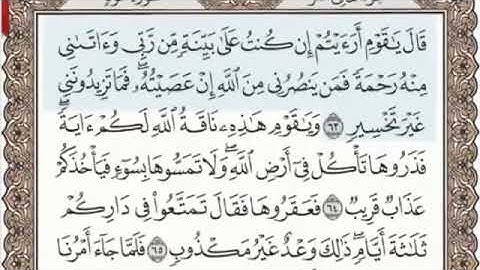 قَالَ يَٰقَوْمِ أَرَءَيْتُمْ إِن كُنتُ عَلَىٰ بَيِّنَةٍ مِّن رَّبِّى وَءَاتَىٰنِى
مِنْهُ رَحْمَةً فَمَن يَنصُرُنِى مِنَ ٱللَّهِ إِنْ عَصَيْتُهُۥۖ فَمَا تَزِيدُونَنِى
غَيْرَ تَخْسِيرٍ ٦٣ وَيَٰقَوْمِ هَٰذِهِۦ نَاقَةُ ٱللَّهِ لَكُمْ ءَايَةًۖ
فَذَرُوهَا تَأْكُلْ فِىٓ أَرْضِ ٱللَّهِۖ وَلَا تَمَسُّوهَا بِسُوٓءٍ فَيَأْخُذَكُمْ
عَذَابٌ قَرِيبٌ ٦٤ فَعَقَرُوهَا فَقَالَ تَمَتَّعُوا۟ فِى دَارِكُمْ
ثَلَٰثَةَ أَيَّامٍۖ ذَٰلِكَ وَعْدٌ غَيْرُ مَكْذُوبٍ ٦٥ فَلَمَّا جَآءَ أَمْرُنَا